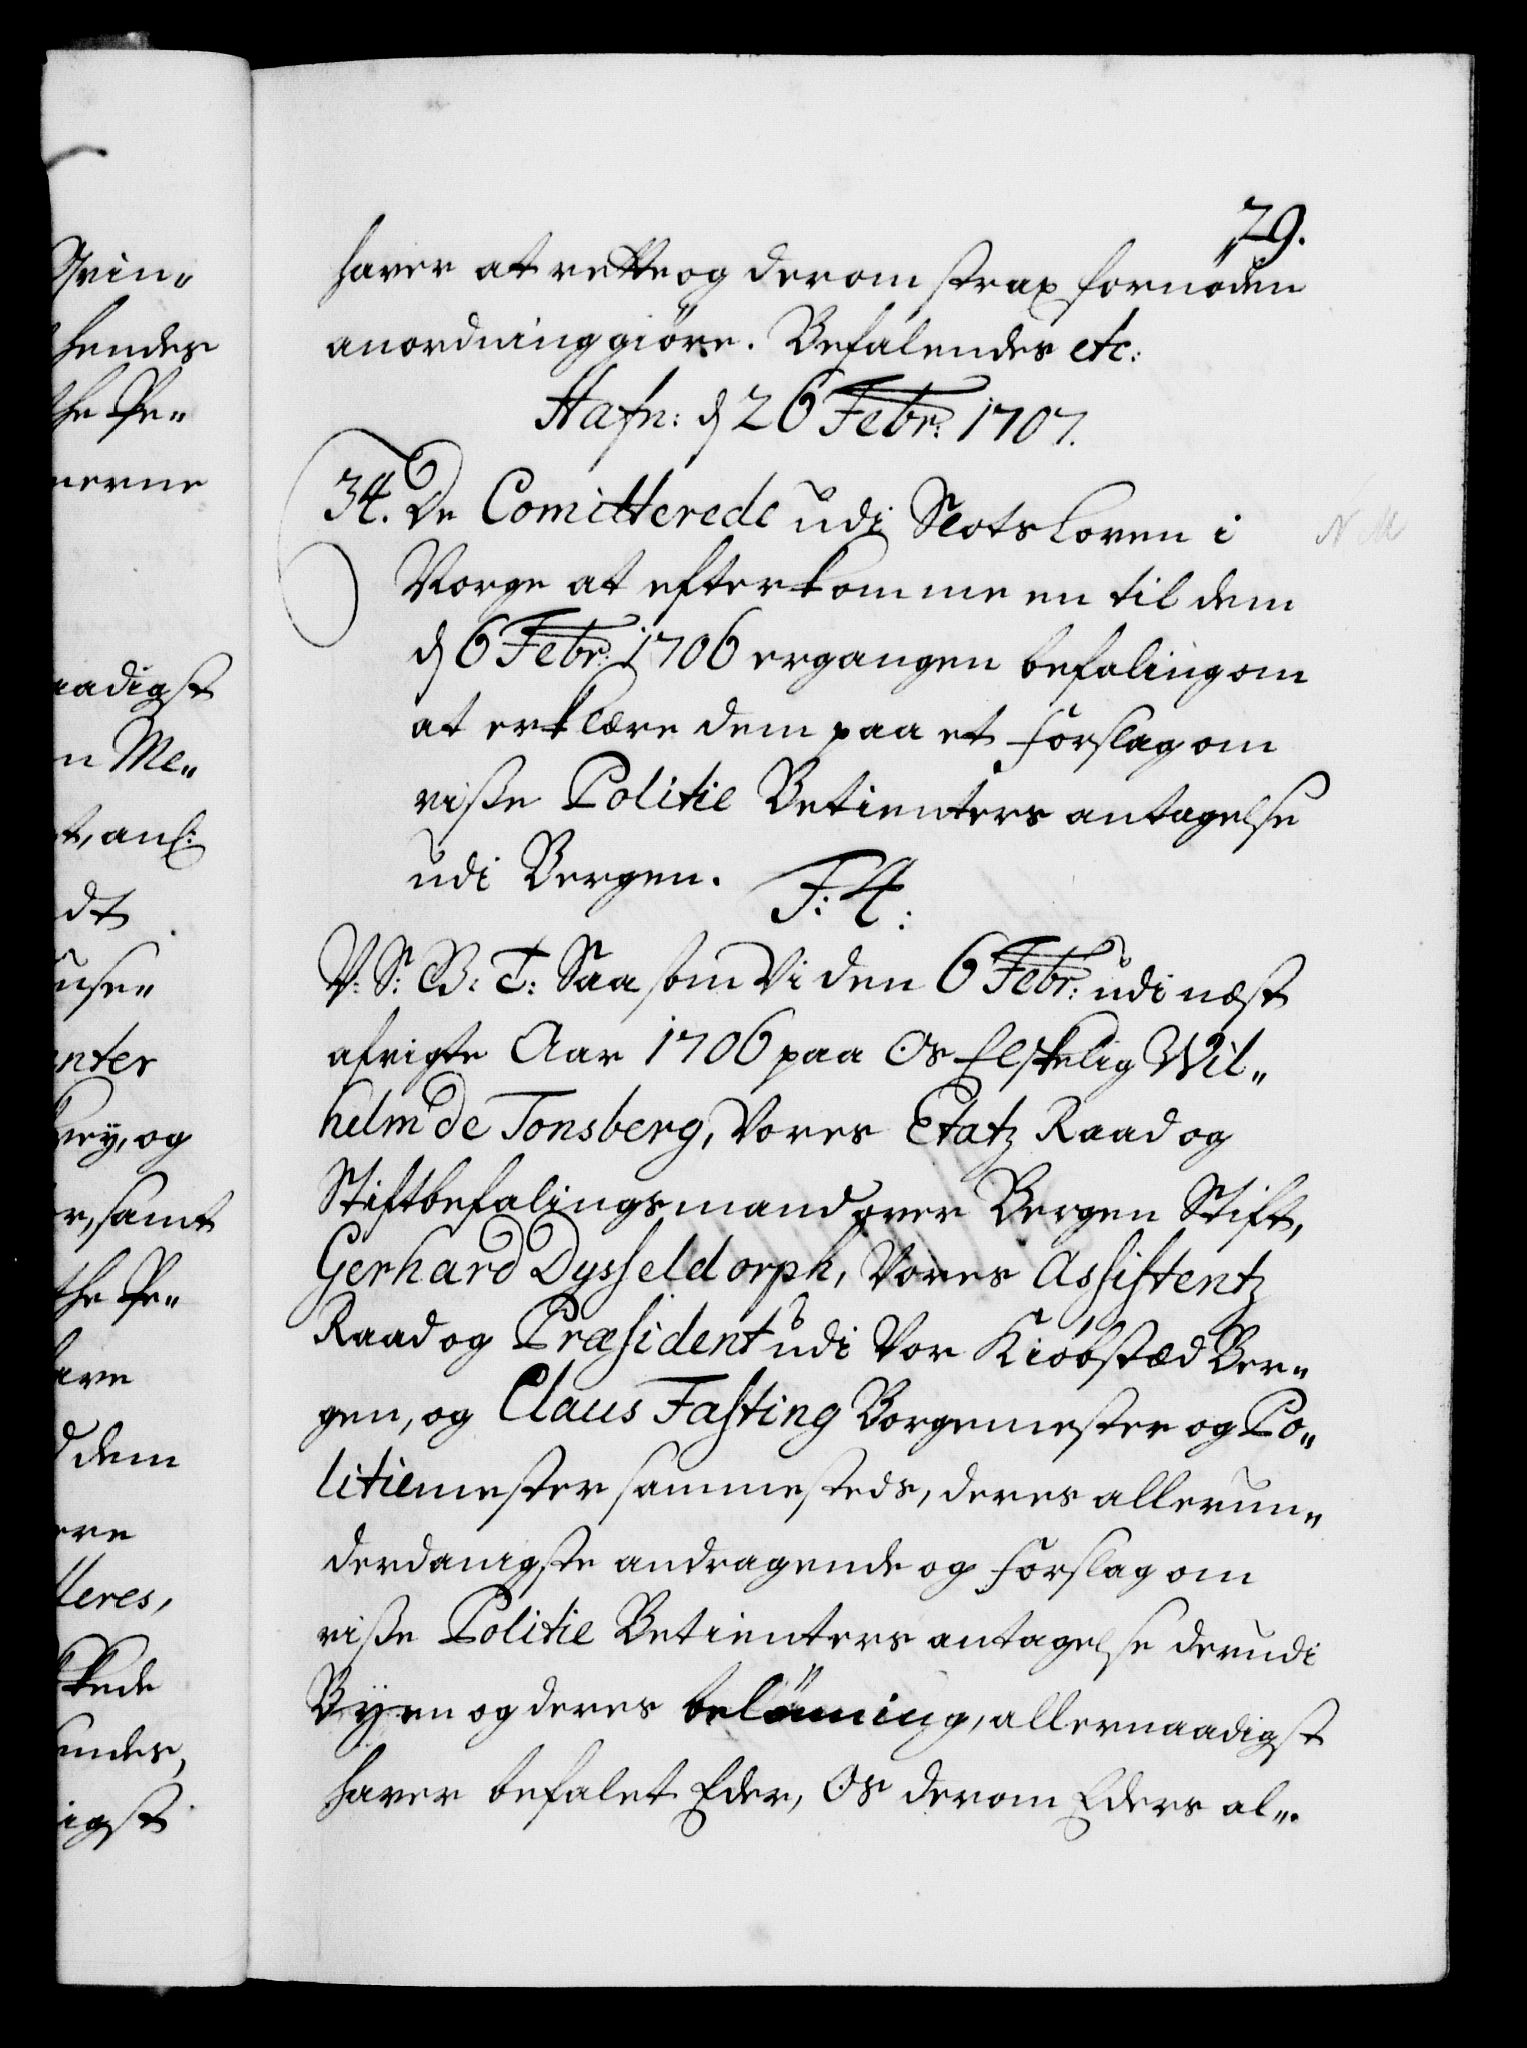 29.
haver at rette og derom strax fornøden
anordning giöre. Befalendes etc:
Hafn: d 26 Febr: 1707.
34. De Comitterede udi Slots Loven i
Norge at efterkomme en til dem
d 6 Febr: 1706 ergangen befaling om
at erklære dem paa et forslag om
visse Politie Betienters antagelse
udi Bergen. F: 4:
V: S: G: T: Saa som Vi den 6 Febr: udi næst
afvigte Aar 1706 paa Os Elskelig Wil„
helm de Tonsberg, Vores Etatz Raad og
Stiftbefalingsmand over Bergen Stift,
Gerhard Dysseldorph, Vores Assistentz
Raad og Præsident udi Vor Kiøbstæd Ber„
gen, og Claus Fasting Borgemester og Po„
litiemester sammesteds, deres allerun„
derdanigste andragende og forslag om
visse Politie Betienters antagelse derudi
Byen og deres belönning, allernaadigst
haver befalet Eder, Os derom Eders al„
Qvin„
hendes
the Pe„
nerne
aadigst
n Me„
t, anl:
dt
use„
nter
ney, og
r, samt
the Pe„
ave
d dem
ere
lleres,
skede
endes,
igst